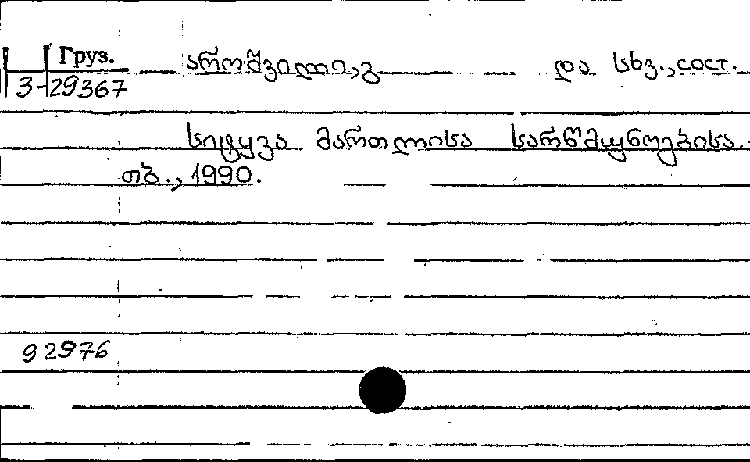 Груз. აროშვილი,გ და სხვ.,сост.
3-29367
სიტყვა მართლისა სარწმუნოებისა.
თბ., 1990.
92976